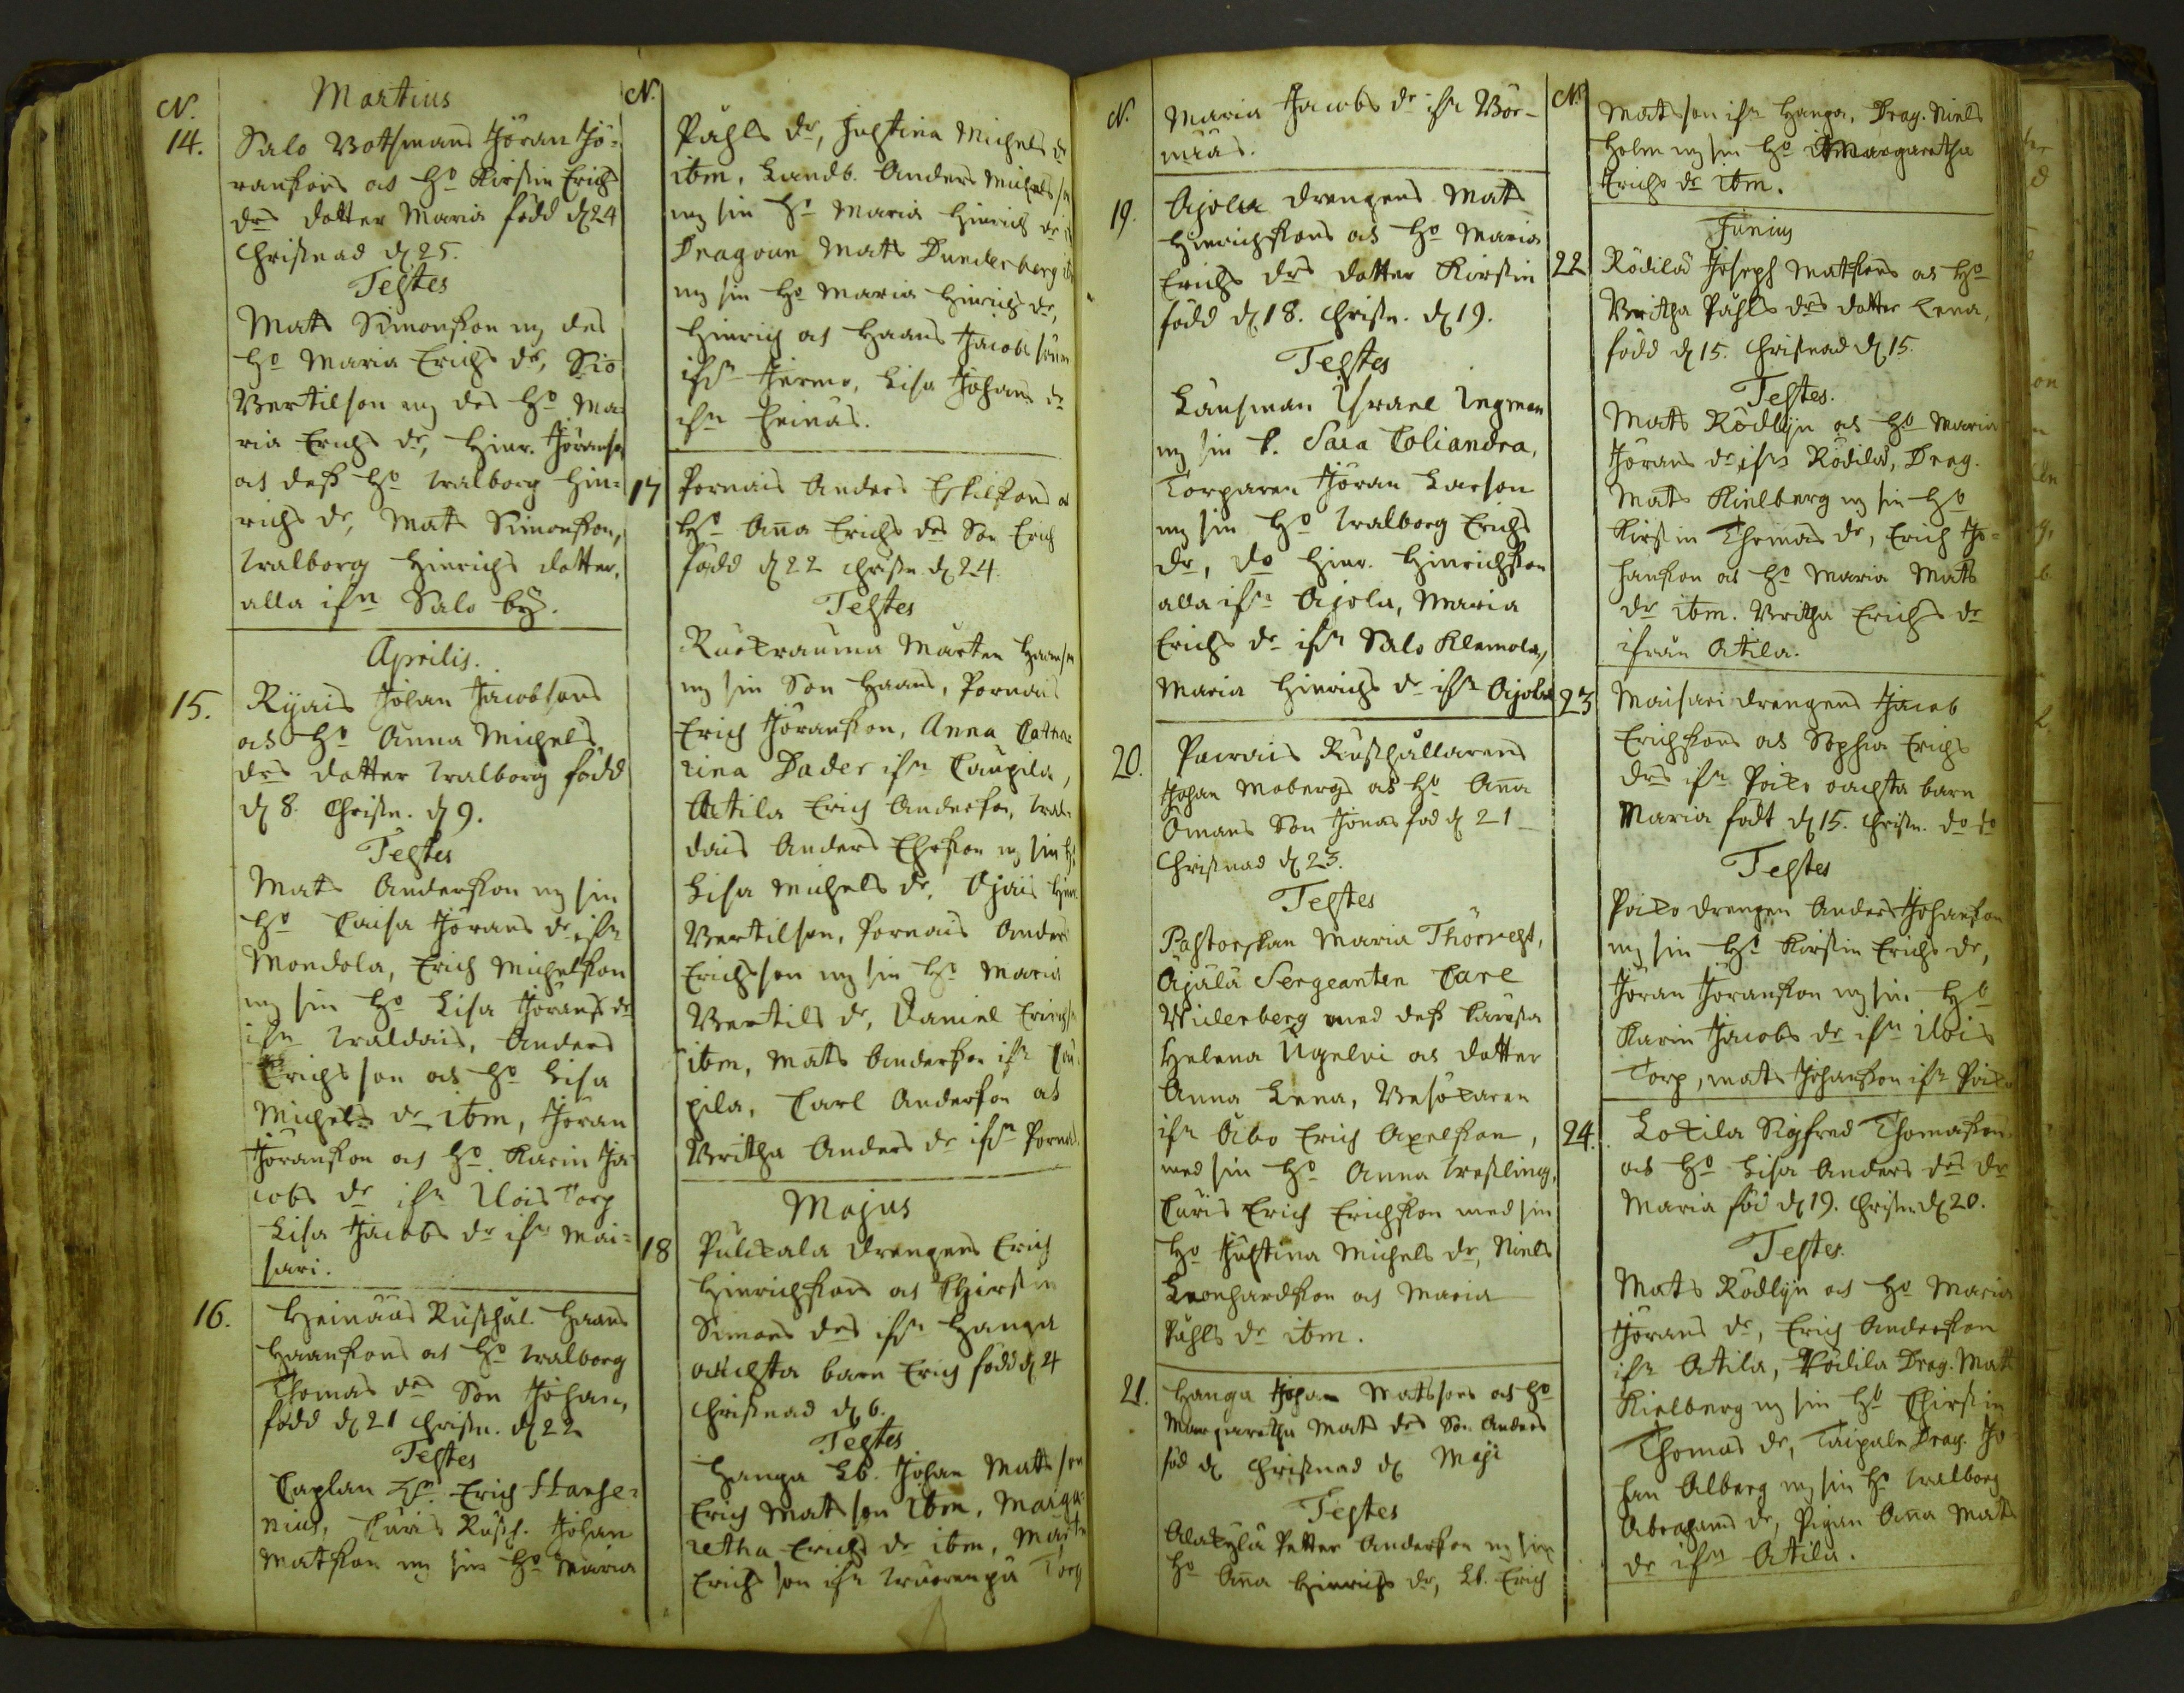 N.
Martius
14. Salo Botsmans Jöran Jö-
ransons och H:o Kirstin Erichs
drs dotter Maria född d 24
Christnad d 25.
Testes
Mats Simonson mz des
H:o Maria Erichs dr,
Bertilson mz des H:o Ma-
ria Erichs dr, Hinr. Jöranson
och dess H:o Walborg Hin-
richs dr, Mats Simonson,
Walborg Hinrichs dotter,
alla ifrn Salo by.
Aprilis.
15. Ryais Johan Jacobsons
och H:o Anna Michels
drs dotter Walborg född
d 8. Christn. d 9.
Testes
Mats Anderson mz sin
H:o Caisa Jörans dr ifrn
Mondola, Erich Michelson
mz sin H:o Lisa Jörans dr
ifrn Waldais, Anders
Erichsson och H:o Lisa
Michels dr ibm, Jöran
Jöranson och H:o Karin Ja-
cobs dr ifrn Uois Torp
Lisa Jacobs dr ifrn Mai-
sari.
16. Heinäas Rusthål. Haans
Haansons och H:o Walborg
Thomas drs Son Johan,
född d 21 Christn. d 22
Testes
Caplan Erich Stanse-
nius, Turis Rusth. Johan
Matson mz sin H:o Maria
N.
Påhls dr, Justina Michels dr
ibm, Landb. Anders Michelsson
mz sin H:o Maria Hinrich dr
Dragoun Mats Dunderberg
mz sin H:o Maria Hinrichs dr,
Hinrich och Haans Jacobs
ifrn Jermo, Lisa Johans dr
ifrn Heinäs.
17 Pornais Anders Eskilsons
H:o Ana Erichs drs Son Erich
född d 22 christn d 24.
Testes
Ruokrauma Mårten Haanson
mz sin Son Haans, Pornais
Erich Jöranson, Anna Catha-
rina Dader ifrn Caupila,
Attila Erich Anderson, Wal-
dais Anders mz sin H:o
Lisa Michels dr, Ojais Hinr
Bertilson, Pornais Anders
Erichsson mz sin H:o Maria
Bertils dr, Daniel Erichs
ibm, Mats Anderson ifrn Cau-
pila, Carl Anderson och
Britha Anders dr ifrn Pornais
Majus
18 Pulkala drengens Erich
Hinrichsons och Chirstin
Simons drs ifrn Hanga
oächta barn Erich född d 4
Christnad d 6.
Testes
Hanga Lb. Johan Matsson
Erich Matsson Ibm, Marga-
retha Erichs dr ibm, Mårten
Erichsson ifrn Torp
N. Maria Jacobs dr ifrn Bör-
19. Ajola drengens Mats
Hinrichsons och H:o Maria
Erichs drs dotter Kirstin
född d 18. Christn. d 19.
Testes
Länsman Israel Ingman
mz sin k. Sara Coliandra,
Torparen Jöran Larson
mz sin H:o Walborg Erichs
dr, do Hinr. Hinrichson
alla ifrn Ajola, Maria
Erichs dr ifrn Salo Klemola,
Maria Hinrichs dr ifrn Ajola
20. Pairais Rusthållarens
Johan Mobergs och H:o Ana
Ömans Son Jonas föd d 21
Christnad d 23.
Testes
Pastorskan Maria Thörvest,
Äjälä Sergeanten Carl
Widerberg med dess kärista
Helena Ugelvi och dotter
Anna Lena, Besökaren
ifrn Åbo Erich Axelson,
med sin H:o Anna Wessling,
Turis Erich Erichson med sin
H:o Justina Michels dr, Niels
Leonhardson och Maria
Påhls dr ibm.
21. Hanga Johan Matssons och H:o
Margaretha Mats drs Son Anders
föd d Christnad d Maji
Testes
Alakylä Petter Anderson mz sin
H:o Ana Hinrichs dr, Lb. Erich
N. Matsson ifrn Hanga, Drag. Niels
Holm mz sin H:o Margaretha
Erichs dr ibm.
Junius
22 Rödilä Joseph Matsons och H:o
Britha Påhls drs dotter Lena,
född d 15. Christnad d 15.
Testes.
Mats Rödlyn och H:o Maria
Jörans dr ifrn Rödilä, Drag.
Mats Kielberg mz sin H:o
Kirstin Thomas dr, Erich Jo-
hanson och H:o Maria Mats
dr ibm. Britha Erichs dr
ifrån Atila.
23 Maisari drengens Jacob
Erichsons och Sophia Erichs
drs ifrn Poiko oächta barn
Maria födt d 15. Christn. do do
Testes
Poiko drengen Anders Johanson
mz sin H:o Kirstin Erichs dr,
Jöran Jöranson mz sin H:o
Karin Jacobs dr ifrn Uois
Torp, Mats Johanson ifrn Poiko
24. Lokila Sigfred Thomasons
och H:o Lisa Anders drs dr
Maria föd d 19. Christn d 20.
Testes.
Mats Rödlyn och H:o Maria
Jörans dr, Erich Anderson
ifrn Atila, Rödila Drag. Mats
Kielberg mz sin H:o Chirstin
Thomas dr, Taipale Drag. Jo-
han Alberg mz sin H:o Walborg
Abrahams dr, Pigan Ana Mats
dr ifrn Atila.